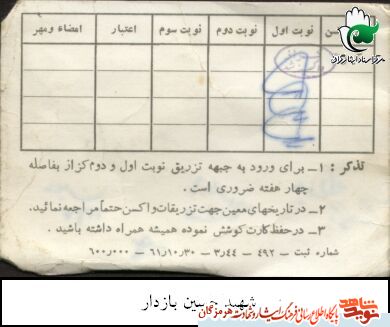 مرکز اسناد ایثارگران
سن نوبت اول نوبت دوم نوبت سوم اعتبار امضاء و مهر
تذکر : ۱ـ برای ورود به جبهه تزریق نوبت اول و دوم کزاز بفاصله
چهار هفته ضروری است .
۲ـ در تاریخهای معین جهت تزریقات واکسن حتماً مراجعه نمائید.
۳ـ در حفظ کارت کوشش نموده همیشه همراه داشته باشید .
شماره ثبت ـ ۴۹۲ ـ ۳٫۴۴ ـ ۶۱٫۱۰٫۳۰ ـ ۶۰۰٫۰۰۰
شهید حسین بازدار
نوید شاهد
پایگاه اطلاع رسانی فرهنگ ایثار و شهادت هرمزگان